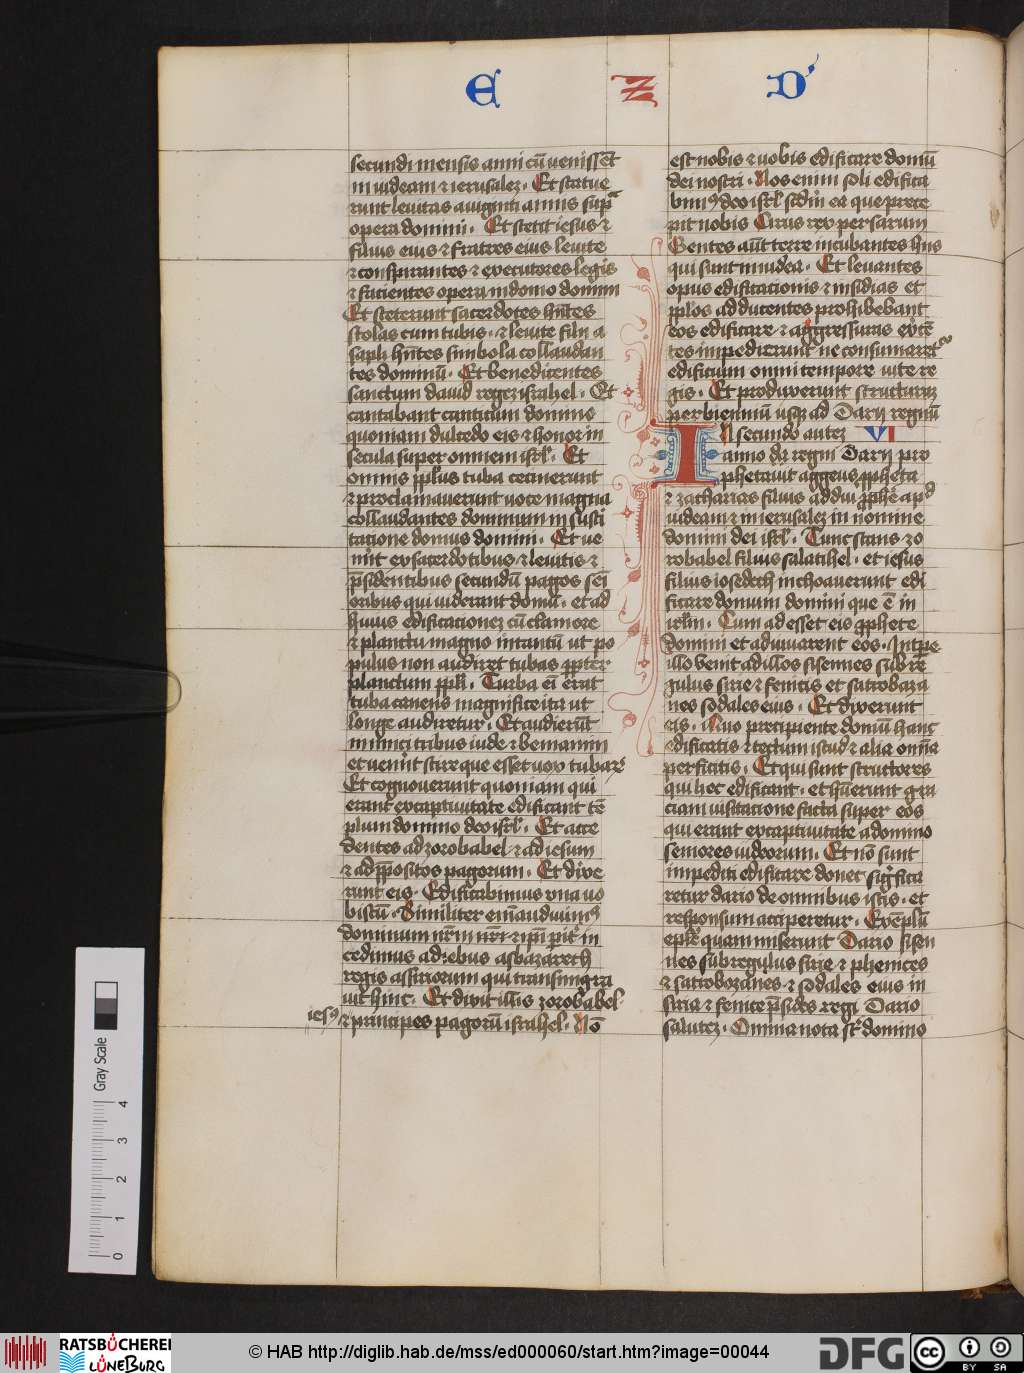 E Z D'
secundi mensis anni cū venissēt
in iudeam ⁊ ierusalez. Et statue
runt leuitas a uiginti annis supͣ
opera domini. Et stetit iesus ⁊
filius eius ⁊ fratres eius leuite
⁊ conspirantes ⁊ executores legis
⁊ facientes opera in domo domini
Et steterunt sacerdotes hn̄tes
stolas cum tubis. ⁊ leuite filij a
saph hn̄tes simbola collaudan
tes dominū. Et benedicentes
sanctum dauid regez israhel. Et
cantabant canticum domino
quoniam dulcedo eiꝰ ⁊ honor in
secula super omnem isrl̄. Et
omnis ppl̄us tuba cecinerunt
⁊ proclamauerunt uoce magna
collaudantes dominum in susci
tacione domus domini. Et ue
nūt ex sacerdotibus ⁊ leuitis ⁊
p̄sidentibus secundū pagos seni
oribus qui uiderant domū. et ad
huius edificacionez cū clamore
⁊ planctu magno intantū ut po
pulus non audiret tubas ꝓpter
planctum ppl̄i. Turba eī erat
tuba canens magnifice ita ut
longe audiretur. Et audierūt
inimici tribus iude ⁊ beniamin
et uenūt scire que esset uox tubaꝝ
Et cognouerunt quoniam qui
erant ex captiuitate edificant tē
plum domino deo isrl̄. Et acce
dentes ad zorobabel ⁊ ad iesum
⁊ ad p̄positos pagorum. Et dixe
runt eis. Edificabimus vna uo
biscū. Similiter em̄ audiuimꝰ
dominum nr̄m ⁊ ip̄i pit̄ in
cedimus a diebus asbazareth
regis assiriorum qui transmigra
uit hinc. Et dixit illis zorobabel
iesꝰ ⁊ principes pagorū israhel. Nō
est nobis ⁊ uobis edificare domū
dei nostri. Nos enim soli edifica
bimꝰ deo isrl̄ scdm̄ ea que prece
pit nobis Cirus rex persarum
Gentes aūt terre incubantes hijs
qui sunt in iudea. Et leuantes
opus edificacionis ⁊ insidias et
pplos adducentes prohibebant
eos edificare ⁊ aggressuras exer̄cē
tes impedierunt ne consumaretᷣ
edificium omni tempore uite re
gis. Et produxerunt structuram
per bienniū usqꝫ ad Darij regnū
IN secundo autez VI
anno de regni Darij pro
phetauit aggeus ꝓpheta
⁊ zacharias filius addin ꝓphē apd̓
iudeam ⁊ in ierusalez in nomine
domini dei isrl̄. Tunc stans zo
robabel filius salatihel. et iesus
filius iosedech inchoauerunt edi
ficare domum domini que ē in
irl̄m. Cum adesset eis ꝓphete
domini et adiuuarent eos. In ip̄o tpe
illo venit ad illos sisennes subre
gulus sirie ⁊ fenicis et satrobaza
nes sodales eius. Et dixerunt
eis. Quo precipiente domū hanc
edificatis ⁊ tectum istud ⁊ alia omīa
perficitis. Et qui sunt structores
qui hoc edificant. et hūerunt gra
ciam uisitacione facta super eos
qui erant ex captiuitate a domino
seniores iudeorum. Et nō sunt
impediti edificare donec sigͥfica
retur dario de omnibus istis. et
responsum acciperetur. Exēplū
epl̄e quam miserunt Dario sisen
nes subregulus sirie ⁊ phenices
⁊ satrobozanes ⁊ sodales eius in
siria ⁊ fenice p̄sides regi Dario
salutez. Omnia nota st̄ domino
Gray Scale
0 1 2 3 4
RATSBÜCHEREI
LÜNEBURG
© HAB http://diglib.hab.de/mss/ed000060/start.htm?image=00044
DFG
cc BY SA